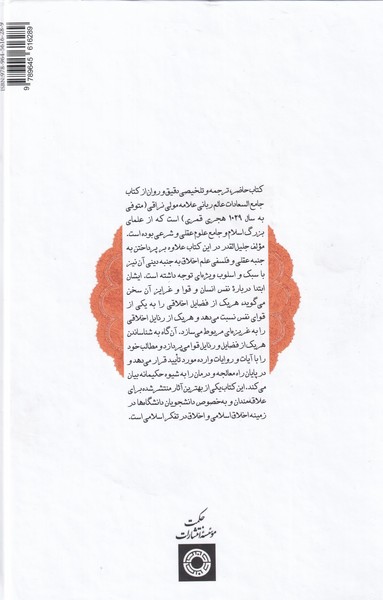 ISBN:978-964-5616-28-9
9 789645 616289
کتاب حاضر، ترجمه و تلخیصی دقیق و روان از کتاب
جامع السعادات عالم ربانی علامه مولی نراقی (متوفی
به سال ۱۰۲۹ هجری قمری) است که از علمای
بزرگ اسلام و جامع علوم عقلی و شرعی بوده است.
مؤلف جلیل‌القدر در این کتاب علاوه بر پرداختن به
جنبه عقلی و فلسفی علم اخلاق به جنبه دینی آن نیز
با سبک و اسلوب ویژه‌ای توجه داشته است. ایشان
ابتدا دربارۀ نفس انسان و قوا و غرایز آن سخن
می‌گوید، هر یک از فضایل اخلاقی را به یکی از
قوای نفس نسبت می‌دهد و هر یک از رذایل اخلاقی
را به غریزه‌ای مربوط می‌سازد. آن‌گاه به شناساندن
هر یک از فضایل و رذایل قوا می‌پردازد و مطالب خود
را با آیات و روایات وارده مورد تأیید قرار می‌دهد و
در پایان راه معالجه و درمان را به شیوه حکیمانه بیان
می‌کند. این کتاب یکی از بهترین آثار منتشر شده برای
علاقه‌مندان و به‌خصوص دانشجویان دانشگاه‌ها در
زمینه اخلاق اسلامی و اخلاق در تفکر اسلامی است.
حکمت
مؤسسه انتشارات